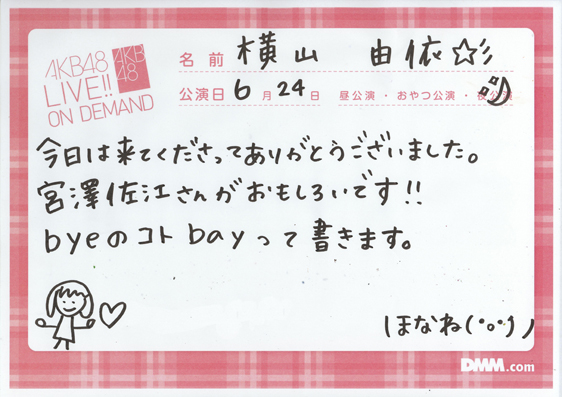 AKB48
LIVE!!
ON DEMAND
AKB
48
名前 横山 由依☆彡
公演日 6月24日 昼公演・おやつ公演・夜公演
今日は来てくださってありがとうございました。
宮澤佐江さんがおもしろいです!!
byeのコトbayって書きます。
ほなね(°o°)ノ
DMM.com